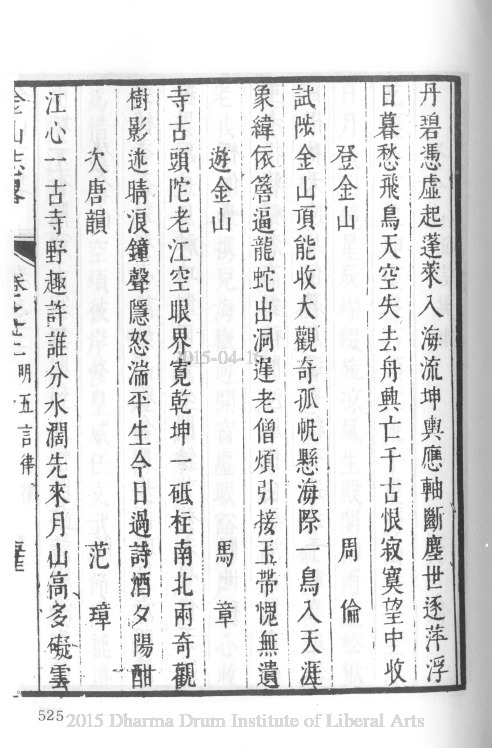 丹碧憑虛起蓬萊入海流坤輿應軸斷塵世逐萍浮
日暮愁飛鳥天空失去舟興亡千古恨寂寞望中收
登金山 周倫
試陟金山頂能收大觀奇孤帆懸海際一鳥入天涯
象緯依簷逼龍蛇出洞遲老僧煩引接玉帶愧無遺
遊金山 馬章
寺古頭陀老江空眼界寬乾坤一砥柱南北兩奇觀
樹影迷晴浪鐘聲隱怒湍平生今日過詩酒夕陽酣
次唐韻 范璋
江心一古寺野趣許誰分水濶先來月山高多礙雲
金山志畧 卷之 明五言律
2015-04-16
525
2015 Dharma Drum Institute of Liberal Arts